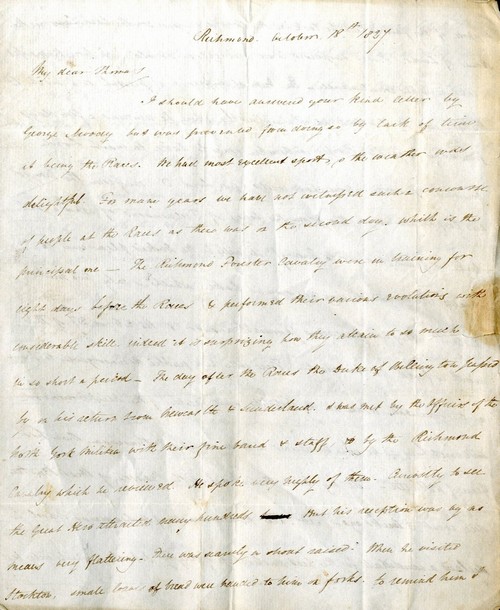 Richmond. October 18th 1827
My dear Thomas
I should have answered your kind letter by
George Morrey but was prevented from doing so by lack of time
it being the Races. We had most excellent sport, & the weather was
delightful. For many years we have not witnessed such a concourse
of people at the Races as there was on the second day, which is the
principal one — The Richmond Forester Cavalry were in training for
eight days before the Races & performed their various evolutions with
considerable skill indeed it is surprizing how they attain to so much
in so short a period — The day after the Races the Duke of Wellington passed
by on his return from Newcastle & Sunderland. & was met by the Officers of the
North York Militia with their fine band & staff & by the Richmond
Cavalry which he reviewed. He spoke very highly of them. Curiosity to see
the Great Hero attracted many hundreds But his reception was by no
means very flattering. There was scarcely a shout raised! When he visited
Stockton, small loaves of bread were handed to him on forks, to remind him of